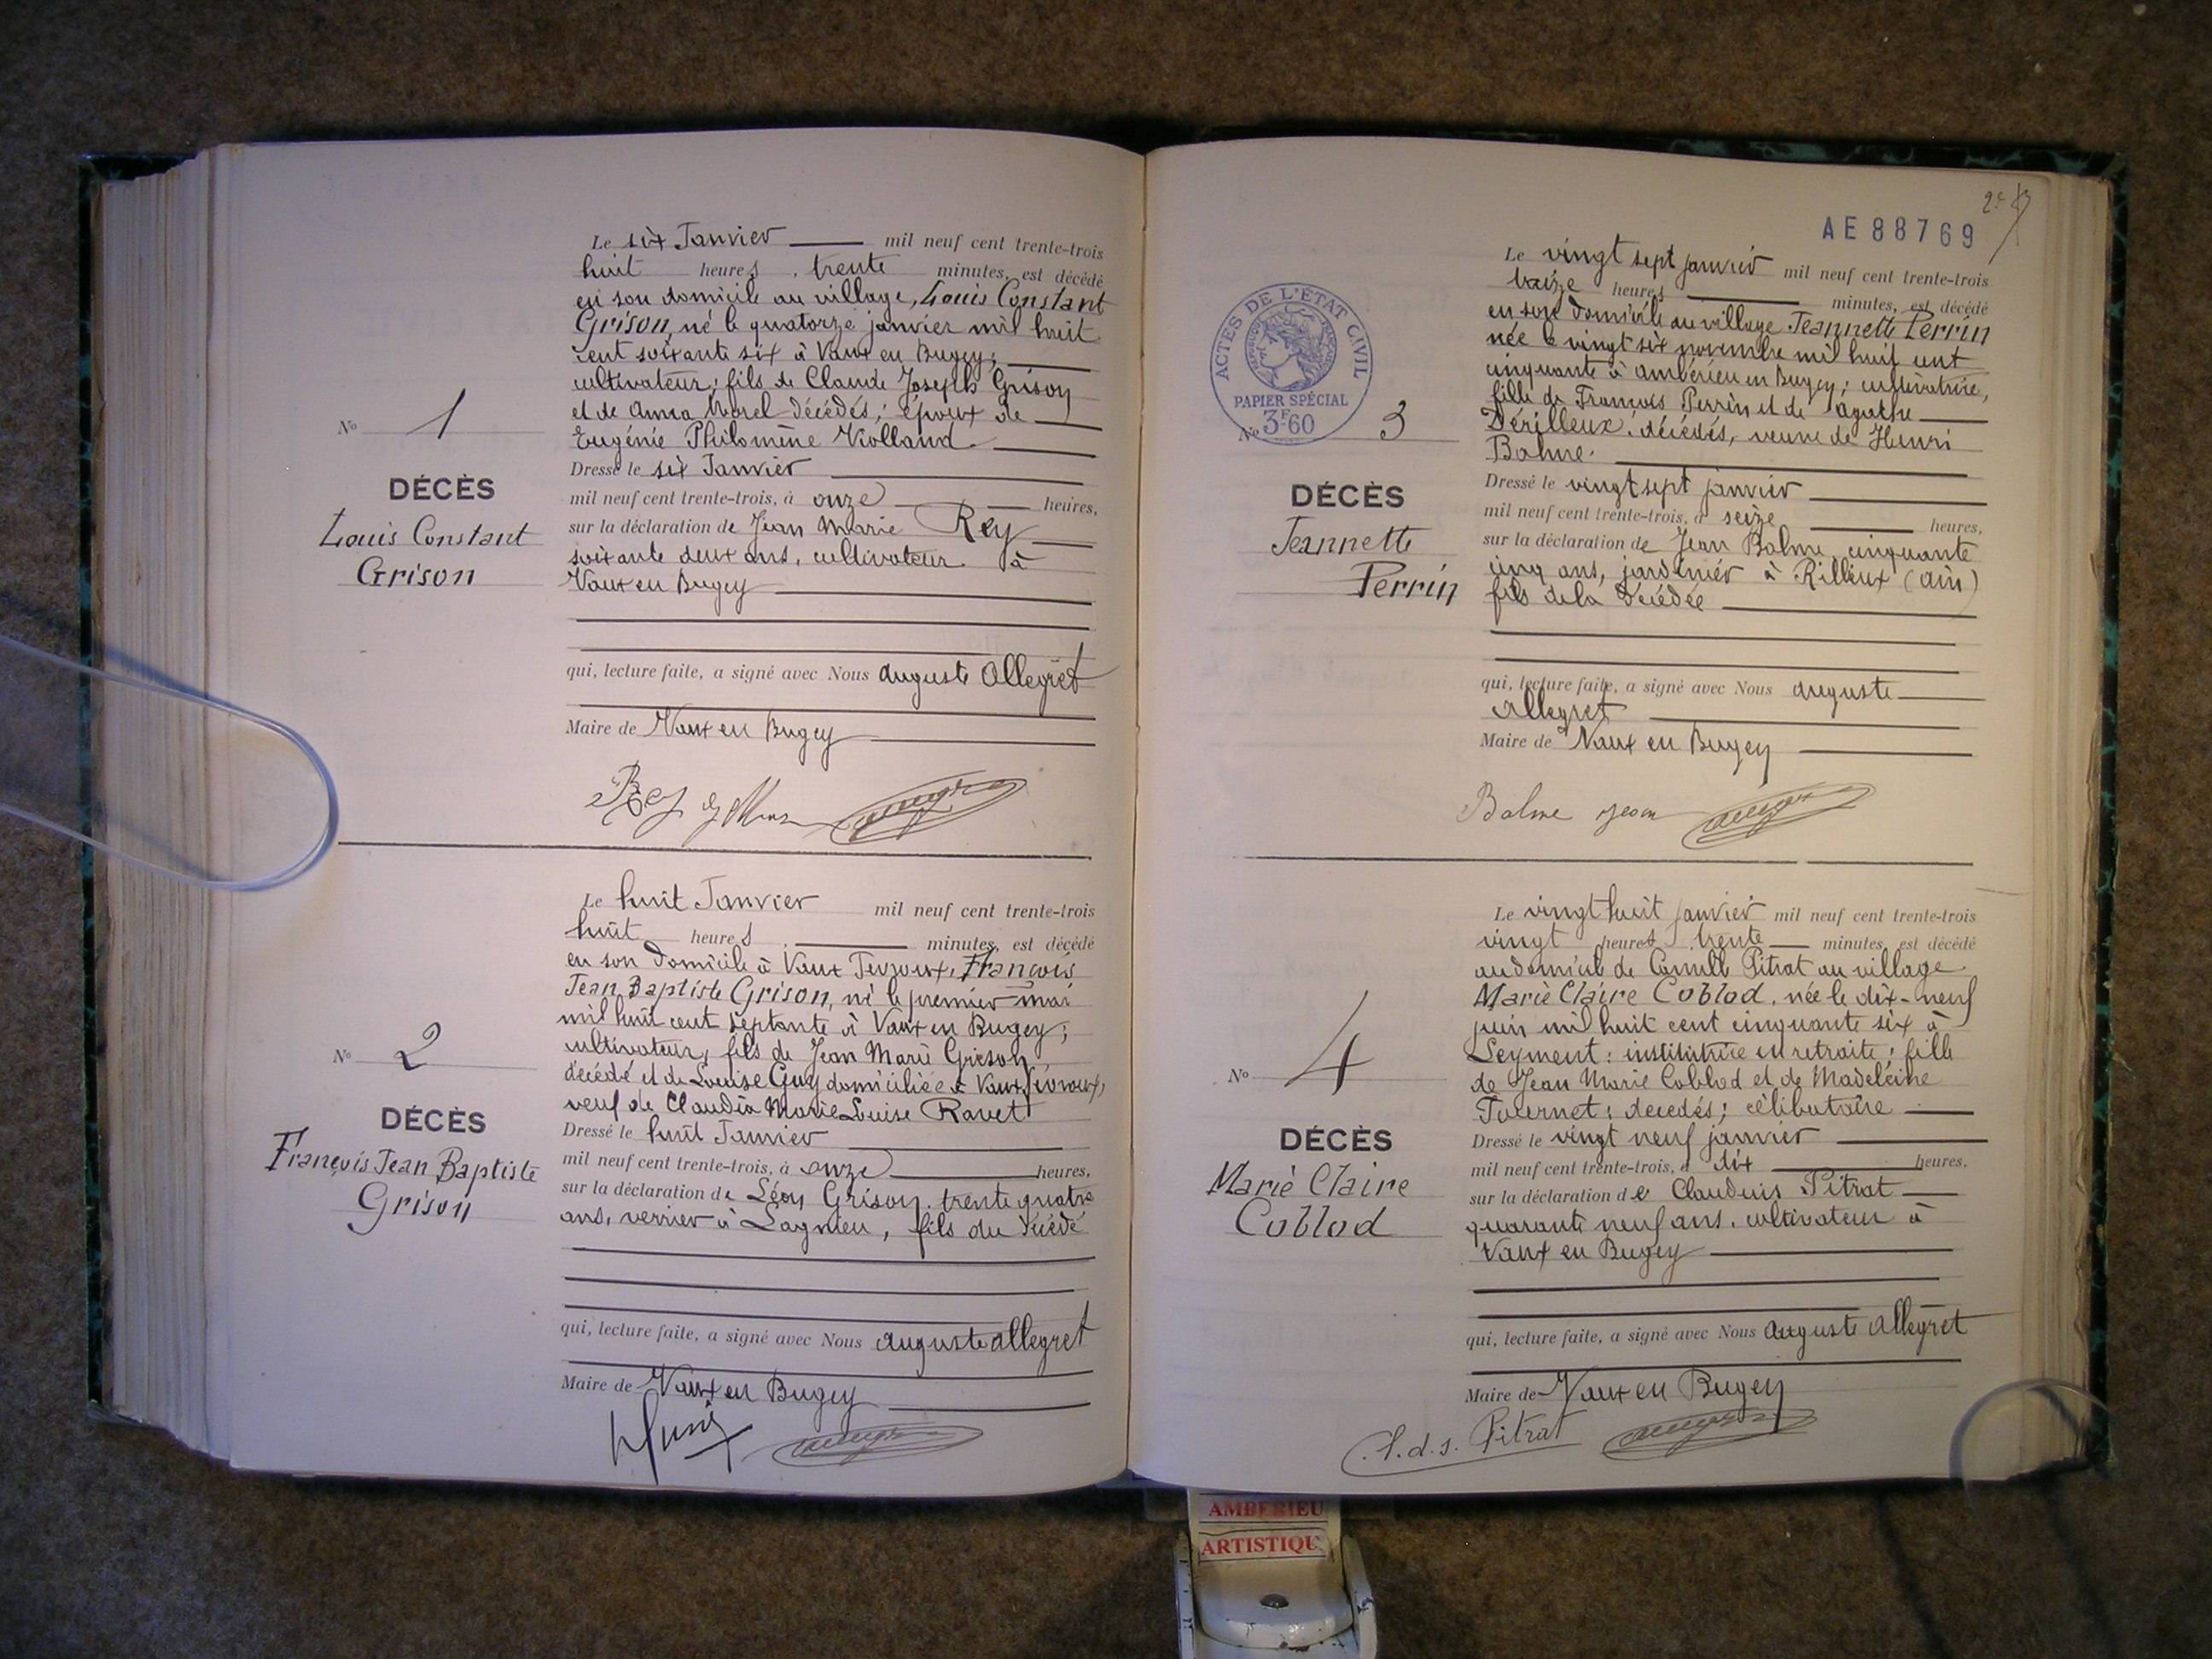 Le six Janvier mil neuf cent trente-trois
huit heures, trente minutes, est décédé
en son domicile au village, Louis Constant
Grison, né le quatorze janvier mil huit
cent soixante six à Vaux en Bugey;
cultivateur; fils de Claude Joseph Grison
et de Anna Morel décédés; époux de
Eugénie Philomène Violland.
Dressé le six Janvier
mil neuf cent trente-trois, à onze heures,
sur la déclaration de Jean Marie Rey
soixante deux ans, cultivateur à
Vaux en Bugey
qui, lecture faite, a signé avec Nous Auguste Allegret
Maire de Vaux en Bugey
No 1
DÉCÈS
Louis Constant
Grison
Rey
Le huit Janvier mil neuf cent trente-trois
huit heures, minutes, est décédé
en son domicile à Vaux Fevroux, François
Jean Baptiste Grison, né le premier mai
mil huit cent septante à Vaux en Bugey;
cultivateur, fils de Jean Marie Grison,
décédé et de Louise Guy domiciliée à Vaux Fevroux,
veuf de Claudia Marie Louise Ravet
Dressé le huit Janvier
mil neuf cent trente-trois, à onze heures,
sur la déclaration de Léon Grison, trente quatre
ans, verrier à Lagnieu, fils du décédé
qui, lecture faite, a signé avec Nous Auguste Allegret
Maire de Vaux en Bugey
No 2
DÉCÈS
François Jean Baptiste
Grison
AE88769
Le vingt sept janvier mil neuf cent trente-trois
treize heures minutes, est décédé
en son domicile au village Jeannette Perrin
née le vingt six novembre mil huit cent
cinquante à Ambérieu en Bugey; cultivatrice,
fille de François Perrin et de Agathe
Dérilleux, décédés, veuve de Henri
Balme.
Dressé le vingt sept janvier
mil neuf cent trente-trois, à seize heures,
sur la déclaration de Jean Balme cinquante
cinq ans, jardinier à Rillieux (Ain)
fils de la décédée
qui, lecture faite, a signé avec Nous Auguste
Allegret
Maire de Vaux en Bugey
ACTES DE L'ÉTAT CIVIL
PAPIER SPÉCIAL
3F60
No 3
DÉCÈS
Jeannette
Perrin
Balme Jean
Le vingt huit janvier mil neuf cent trente-trois
vingt heures, trente minutes, est décédé
au domicile de Camille Pitrat au village
Marie Claire Coblod, née le dix-neuf
juin mil huit cent cinquante six à
Leyment; institutrice en retraite; fille
de Jean Marie Coblod et de Madeleine
Tournet; décédés; célibataire
Dressé le vingt neuf janvier
mil neuf cent trente-trois, à dix heures.
sur la déclaration de Claudius Pitrat
quarante neuf ans, cultivateur à
Vaux en Bugey
qui, lecture faite, a signé avec Nous Auguste Allegret
Maire de Vaux en Bugey
No 4
DÉCÈS
Marie Claire
Coblod
Pitrat
AMBERIEU
ARTISTIQU